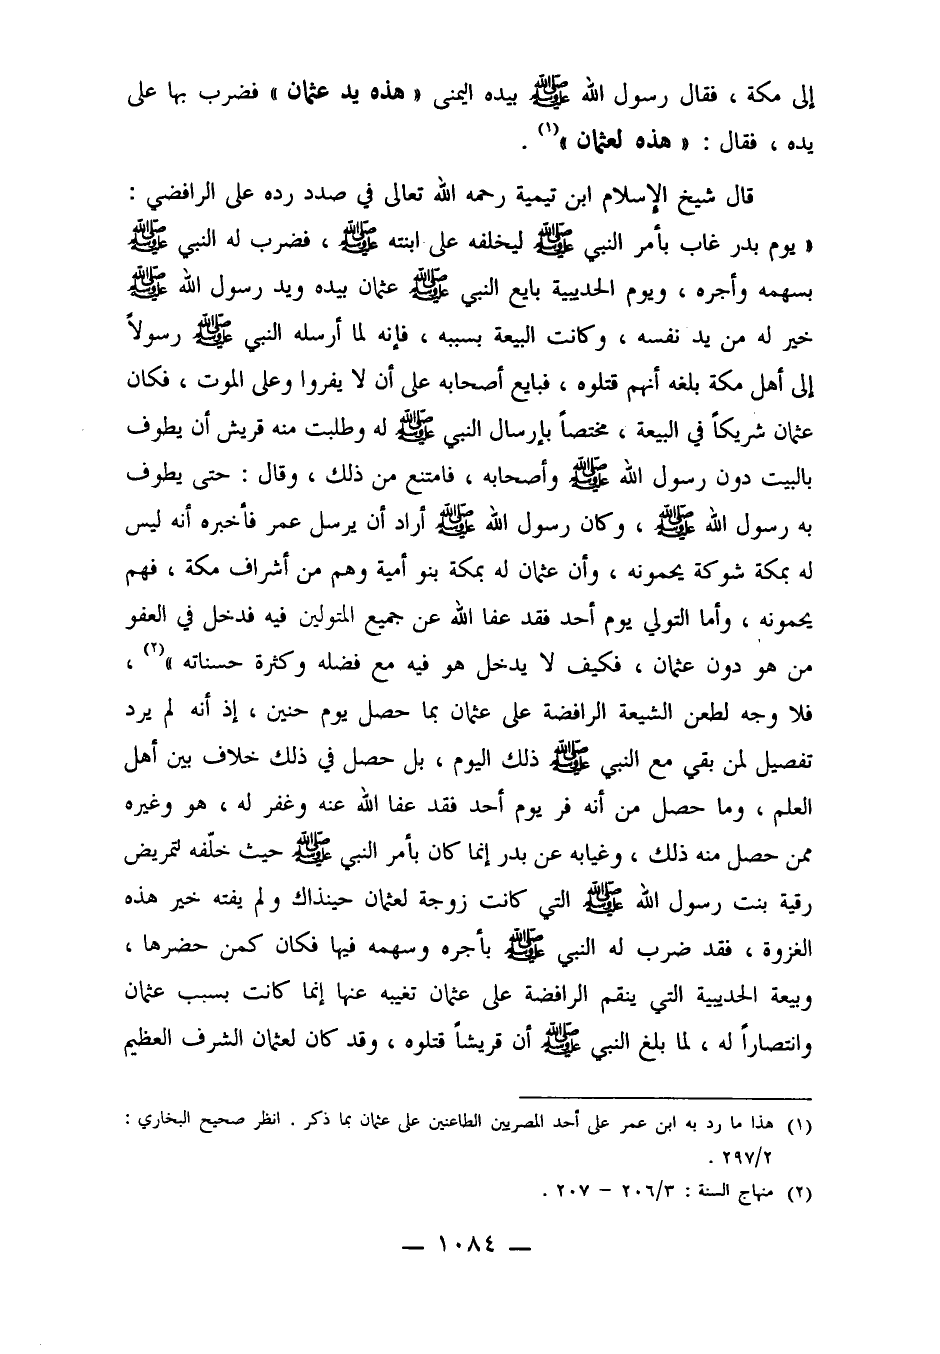 إلى مكة ، فقال رسول الله ﷺ بيده اليمنى « هذه يد عثمان » فضرب بها على
يده ، فقال : « هذه لعثمان »(١) .
قال شيخ الإسلام ابن تيمية رحمه الله تعالى في صدد رده على الرافضي :
« يوم بدر غاب بأمر النبي ﷺ ليخلفه على ابنته ﷺ ، فضرب له النبي ﷺ
بسهمه وأجره ، ويوم الحديبية بايع النبي ﷺ عثمان بيده ويد رسول الله ﷺ
خير له من يد نفسه ، وكانت البيعة بسببه ، فإنه لما أرسله النبي ﷺ رسولاً
إلى أهل مكة بلغه أنهم قتلوه ، فبايع أصحابه على أن لا يفروا وعلى الموت ، فكان
عثمان شريكاً في البيعة ، مختصاً بإرسال النبي ﷺ له وطلبت منه قريش أن يطوف
بالبيت دون رسول الله ﷺ وأصحابه ، فامتنع من ذلك ، وقال : حتى يطوف
به رسول الله ﷺ ، وكان رسول الله ﷺ أراد أن يرسل عمر فأخبره أنه ليس
له بمكة شوكة يحمونه ، وأن عثمان له بمكة بنو أمية وهم من أشراف مكة ، فهم
يحمونه ، وأما التولي يوم أحد فقد عفا الله عن جميع المتولين فيه فدخل في العفو
من هو دون عثمان ، فكيف لا يدخل هو فيه مع فضله وكثرة حسناته »(٢) ،
فلا وجه لطعن الشيعة الرافضة على عثمان بما حصل يوم حنين ، إذ أنه لم يرد
تفصيل لمن بقي مع النبي ﷺ ذلك اليوم ، بل حصل في ذلك خلاف بين أهل
العلم ، وما حصل من أنه فر يوم أحد فقد عفا الله عنه وغفر له ، هو وغيره
ممن حصل منه ذلك ، وغيابه عن بدر إنما كان بأمر النبي ﷺ حيث خلّفه لتمريض
رقية بنت رسول الله ﷺ التي كانت زوجة لعثمان حينذاك ولم يفته خير هذه
الغزوة ، فقد ضرب له النبي ﷺ بأجره وسهمه فيها فكان كمن حضرها ،
وبيعة الحديبية التي ينقم الرافضة على عثمان تغيبه عنها إنما كانت بسبب عثمان
وانتصاراً له ، لما بلغ النبي ﷺ أن قريشاً قتلوه ، وقد كان لعثمان الشرف العظيم
(١) هذا ما رد به ابن عمر على أحد المصريين الطاعنين على عثمان بما ذكر . انظر صحيح البخاري :
٢٩٧/٢ .
(٢) منهاج السنة : ٢٠٦/٣ – ٢٠٧ .
— ١٠٨٤ —